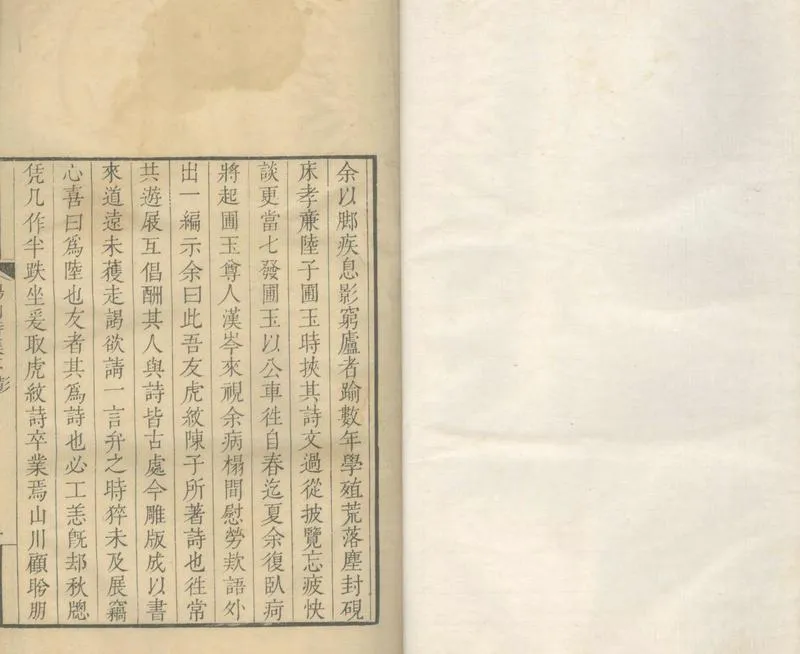 余以脚疾息影窮廬者踰數年學殖荒落塵封硯
床孝亷陸子圃玉時挾其詩文過從披覽忘疲快
談更當七發圃玉以公車徃自春迄夏余復臥疴
將起圃玉尊人漢岑來視余病榻間慰勞欵語外
出一編示余曰此吾友虎紋陳子所著詩也徃常
共遊屐互倡酬其人與詩皆古處今雕版成以書
來道遠未蒦走謁欲請一言弁之時猝未及展竊
心喜曰爲陸也友者其爲詩也必工恙旣却秋牕
凭几作半趺坐爰取虎紋詩卒業焉山川顧盻朋